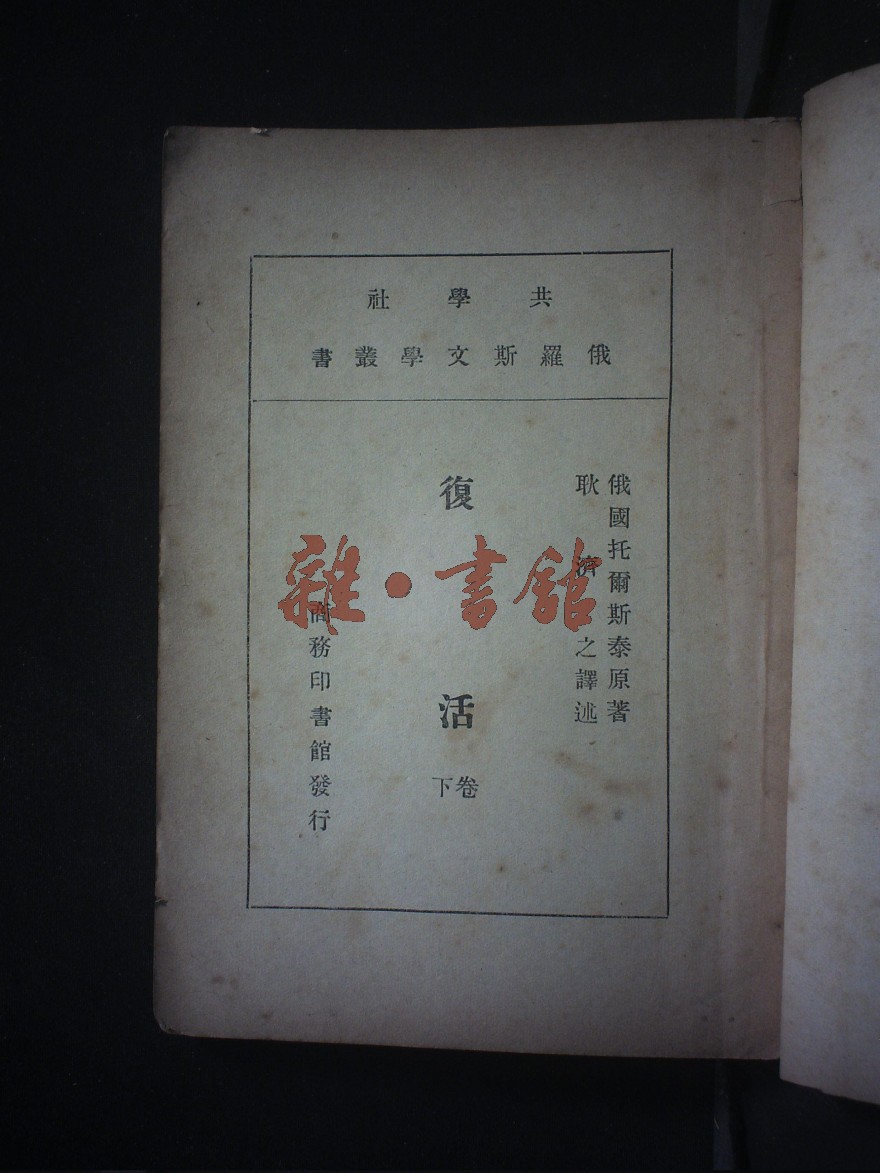 共學社
俄羅斯文學叢書
俄國托爾斯泰原著
耿濟之譯述
復活
卷下
商務印書館發行
雜·書館